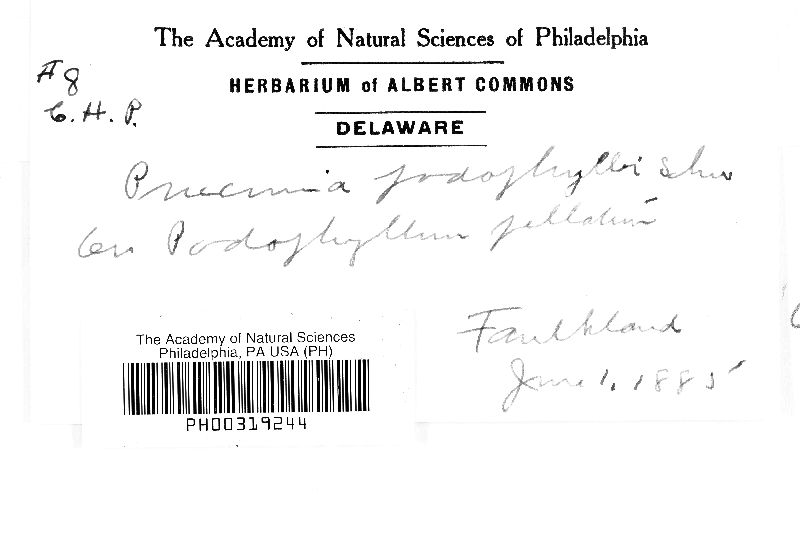 The Academy of Natural Sciences of Philadelphia
HERBARIUM of ALBERT COMMONS
#8
C. H. P.
DELAWARE
Puccinia podophylli Schw
On Podophyllum peltatum
Faulkland
June 1, 1885
The Academy of Natural Sciences
Philadelphia, PA USA (PH)
PH00319244